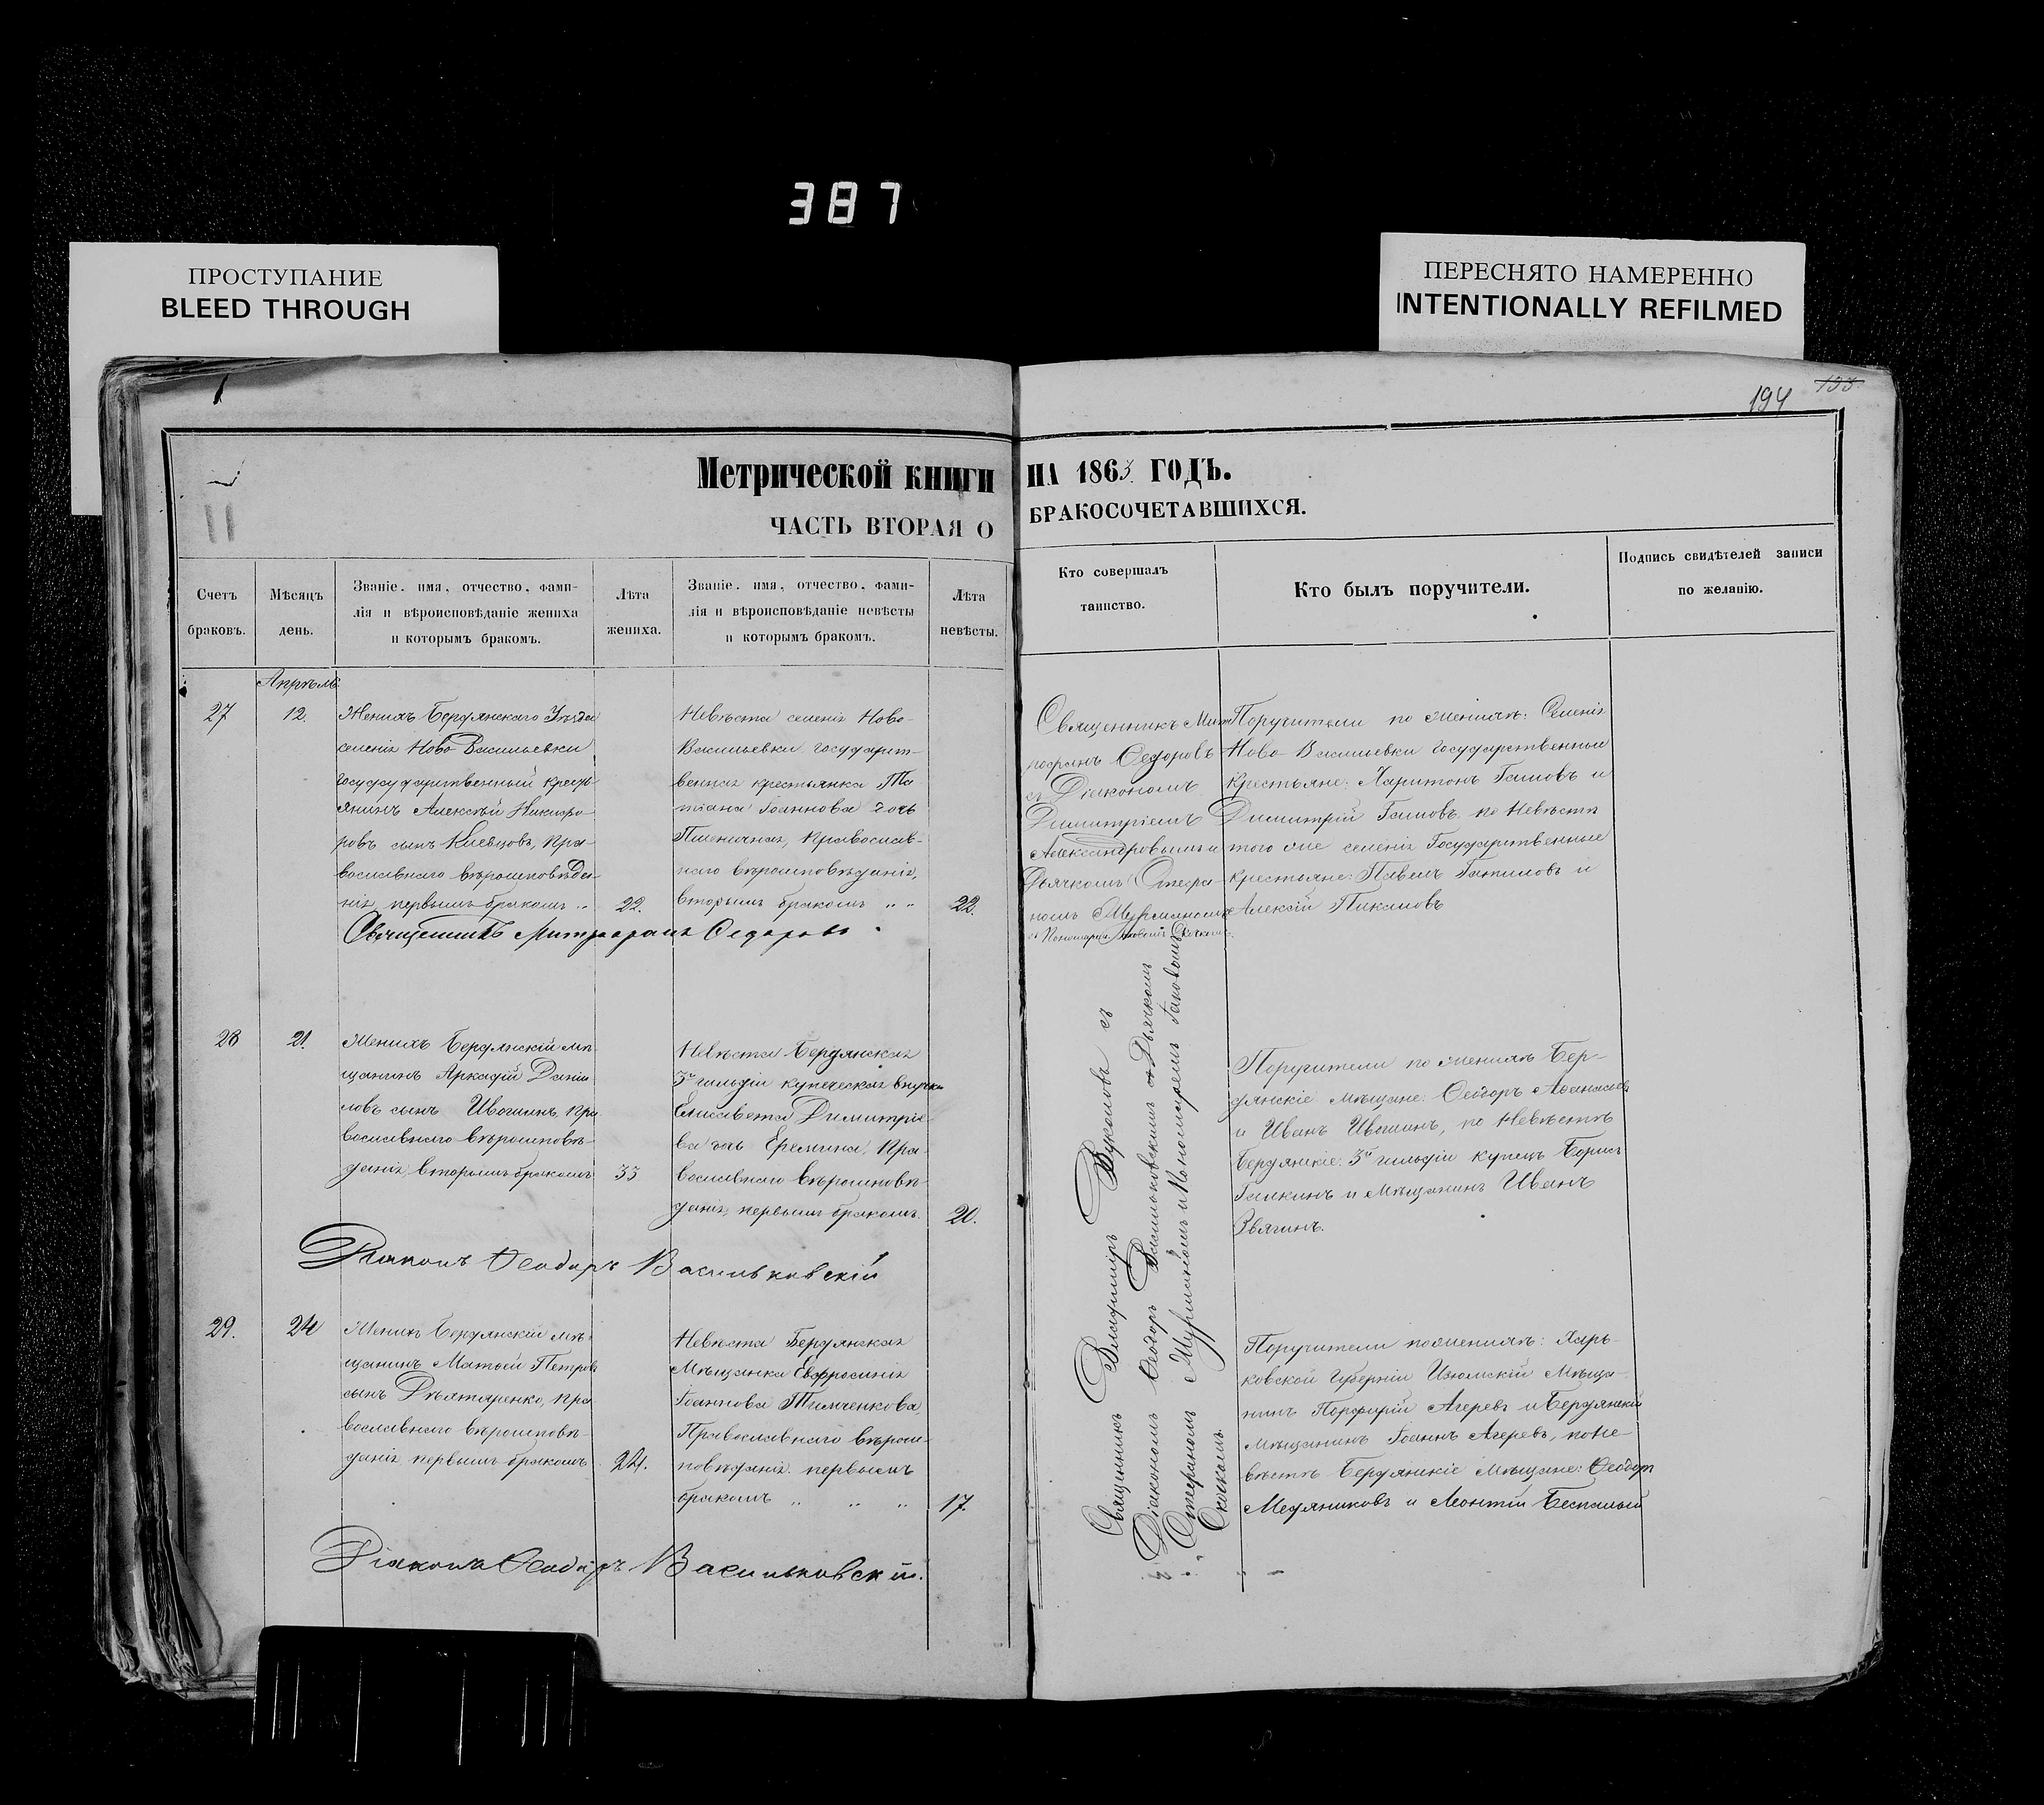 387
ПРОСТУПАНИЕ
BLEED THROUGH
ПЕРЕСНЯТО НАМЕРЕННО
INTENTIONALLY REFILMED
194
Метрической книги на 1863 годъ.
ЧАСТЬ ВТОРАЯ О БРАКОСОЧЕТАВШИХСЯ.
Счетъ браковъ.
Мѣсяцъ день.
Званіе, имя, отчество, фами-
лія и вѣроисповѣданіе жениха
и которымъ бракомъ.
Лѣта жениха.
Званіе, имя, отчество, фами-
лія и вѣроисповѣданіе невѣсты
и которымъ бракомъ.
Лѣта невѣсты.
Кто совершалъ
таинство.
Кто былъ поручители.
Подпись свидѣтелей записи
по желанію.
Апрѣль
27
12.
Женихъ Бердянскаго Уѣзда
селенія Ново Васильевки
государственный кресть-
янинъ Алексѣй Никифо-
ровъ сынъ Киевцовъ, пра-
вославнаго вѣроисповѣда-
нія, первымъ бракомъ "
22.
Невѣста селенія Ново-
Васильевки государст-
венная крестьянка Та
тіана Іоаннова дочь
Пшеничная, православ-
наго вѣроисповѣданія,
вторымъ бракомъ " "
22.
Священникъ Мит
рофанъ Федоровъ
съ Діакономъ
Димитріемъ
Александровымъ и
Дьячкомъ Стефа-
номъ
Поручители по женихѣ: Селенія
Ново-Васильевки государственные
крестьяне: Харитонъ Галовъ и
Димитрій Галовъ по Невѣстѣ
того же селенія Государственные
крестьяне: Павелъ и
Алексій Пикаловъ
Священникъ Митрофанъ Федоровъ
28
21.
Женихъ Бердянскій мѣ-
щанинъ Аркадій Даніи
ловъ сынъ Ивошинъ, пра
вославнаго вѣроисповѣ-
данія, вторымъ бракомъ
33
Невѣста Бердянская
3й гильдіи купеческая внучка
Елисавета Димитріе-
ва дочь Еремина, Пра
вославнаго вѣроисповѣ-
данія, первымъ бракомъ.
20.
Поручители по женихѣ Бер-
дянскіе мѣщане: Ѳеодоръ Аѳанасьев
и Иванъ Ивошинъ, по Невѣстѣ
Бердянскіе: 3й гильдіи купецъ Борисъ
Галкинъ и Мѣщанинъ Иванъ
Звягинъ.
Діаконъ Ѳеодоръ Васильковскій
29.
24
Женихъ Бердянскій мѣ-
щанинъ Матѳей Петровъ
сынъ Дѣхтяренко, пра
вославнаго вѣроисповѣ-
данія, первымъ бракомъ
24.
Невѣста Бердянская
Мѣщанка Евфросинія
Іоаннова Тимченкова,
Православнаго вѣроис-
повѣданія, первымъ
бракомъ " " "
17.
Священникъ Владиміръ Вуколовъ съ
Діакономъ Ѳеодоръ Васильковскимъ Дьячкомъ
Стефаномъ и Пономаремъ Іаковомъ
Поручители по женихѣ: Харь-
ковской Губерніи Изюмскій Мѣща-
нинъ Порфирій Агеревъ и Бердянскій
мѣщанинъ Іоаннъ Агеревъ, по не-
вѣстѣ Бердянскіе Мѣщане: Ѳеодоръ
Медяниковъ и Леонтій Беспалый
Діаконъ Ѳеодоръ Васильковскій.